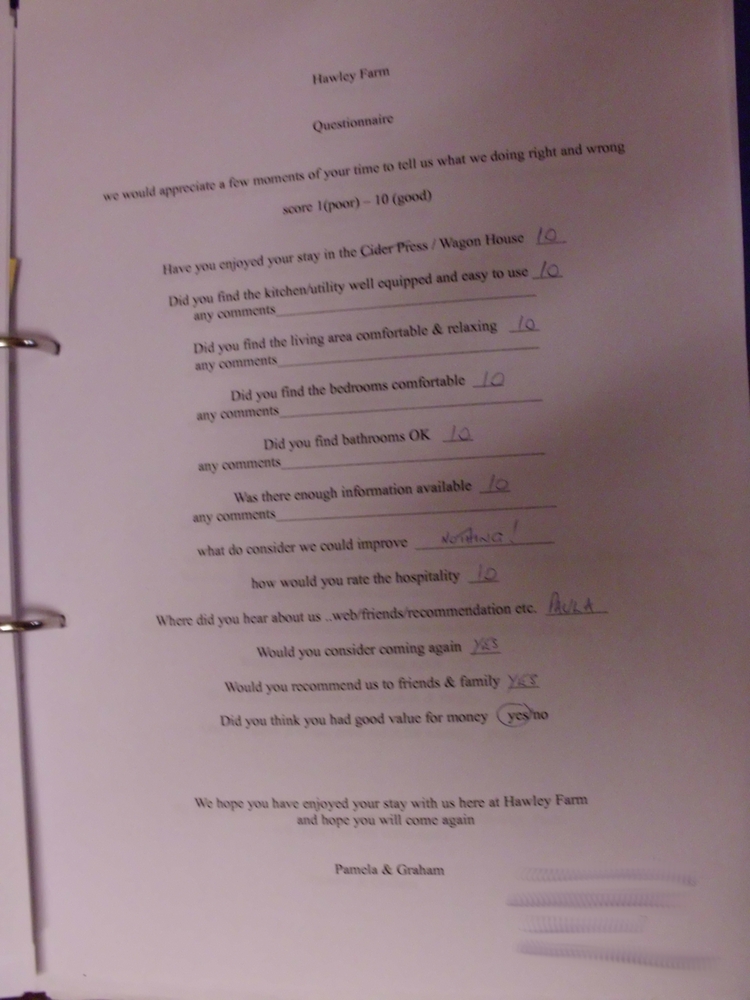 Hawley Farm
Questionnaire
we would appreciate a few moments of your time to tell us what we doing right and wrong
score 1(poor) – 10 (good)
Have you enjoyed your stay in the Cider Press / Wagon House 10
Did you find the kitchen/utility well equipped and easy to use 10
any comments
Did you find the living area comfortable & relaxing 10
any comments
Did you find the bedrooms comfortable 10
any comments
Did you find bathrooms OK 10
any comments
Was there enough information available 10
any comments
what do consider we could improve NOTHING!
how would you rate the hospitality 10
Where did you hear about us ..web/friends/recommendation etc. PAULA
Would you consider coming again YES
Would you recommend us to friends & family YES
Did you think you had good value for money yes/no
We hope you have enjoyed your stay with us here at Hawley Farm
and hope you will come again
Pamela & Graham